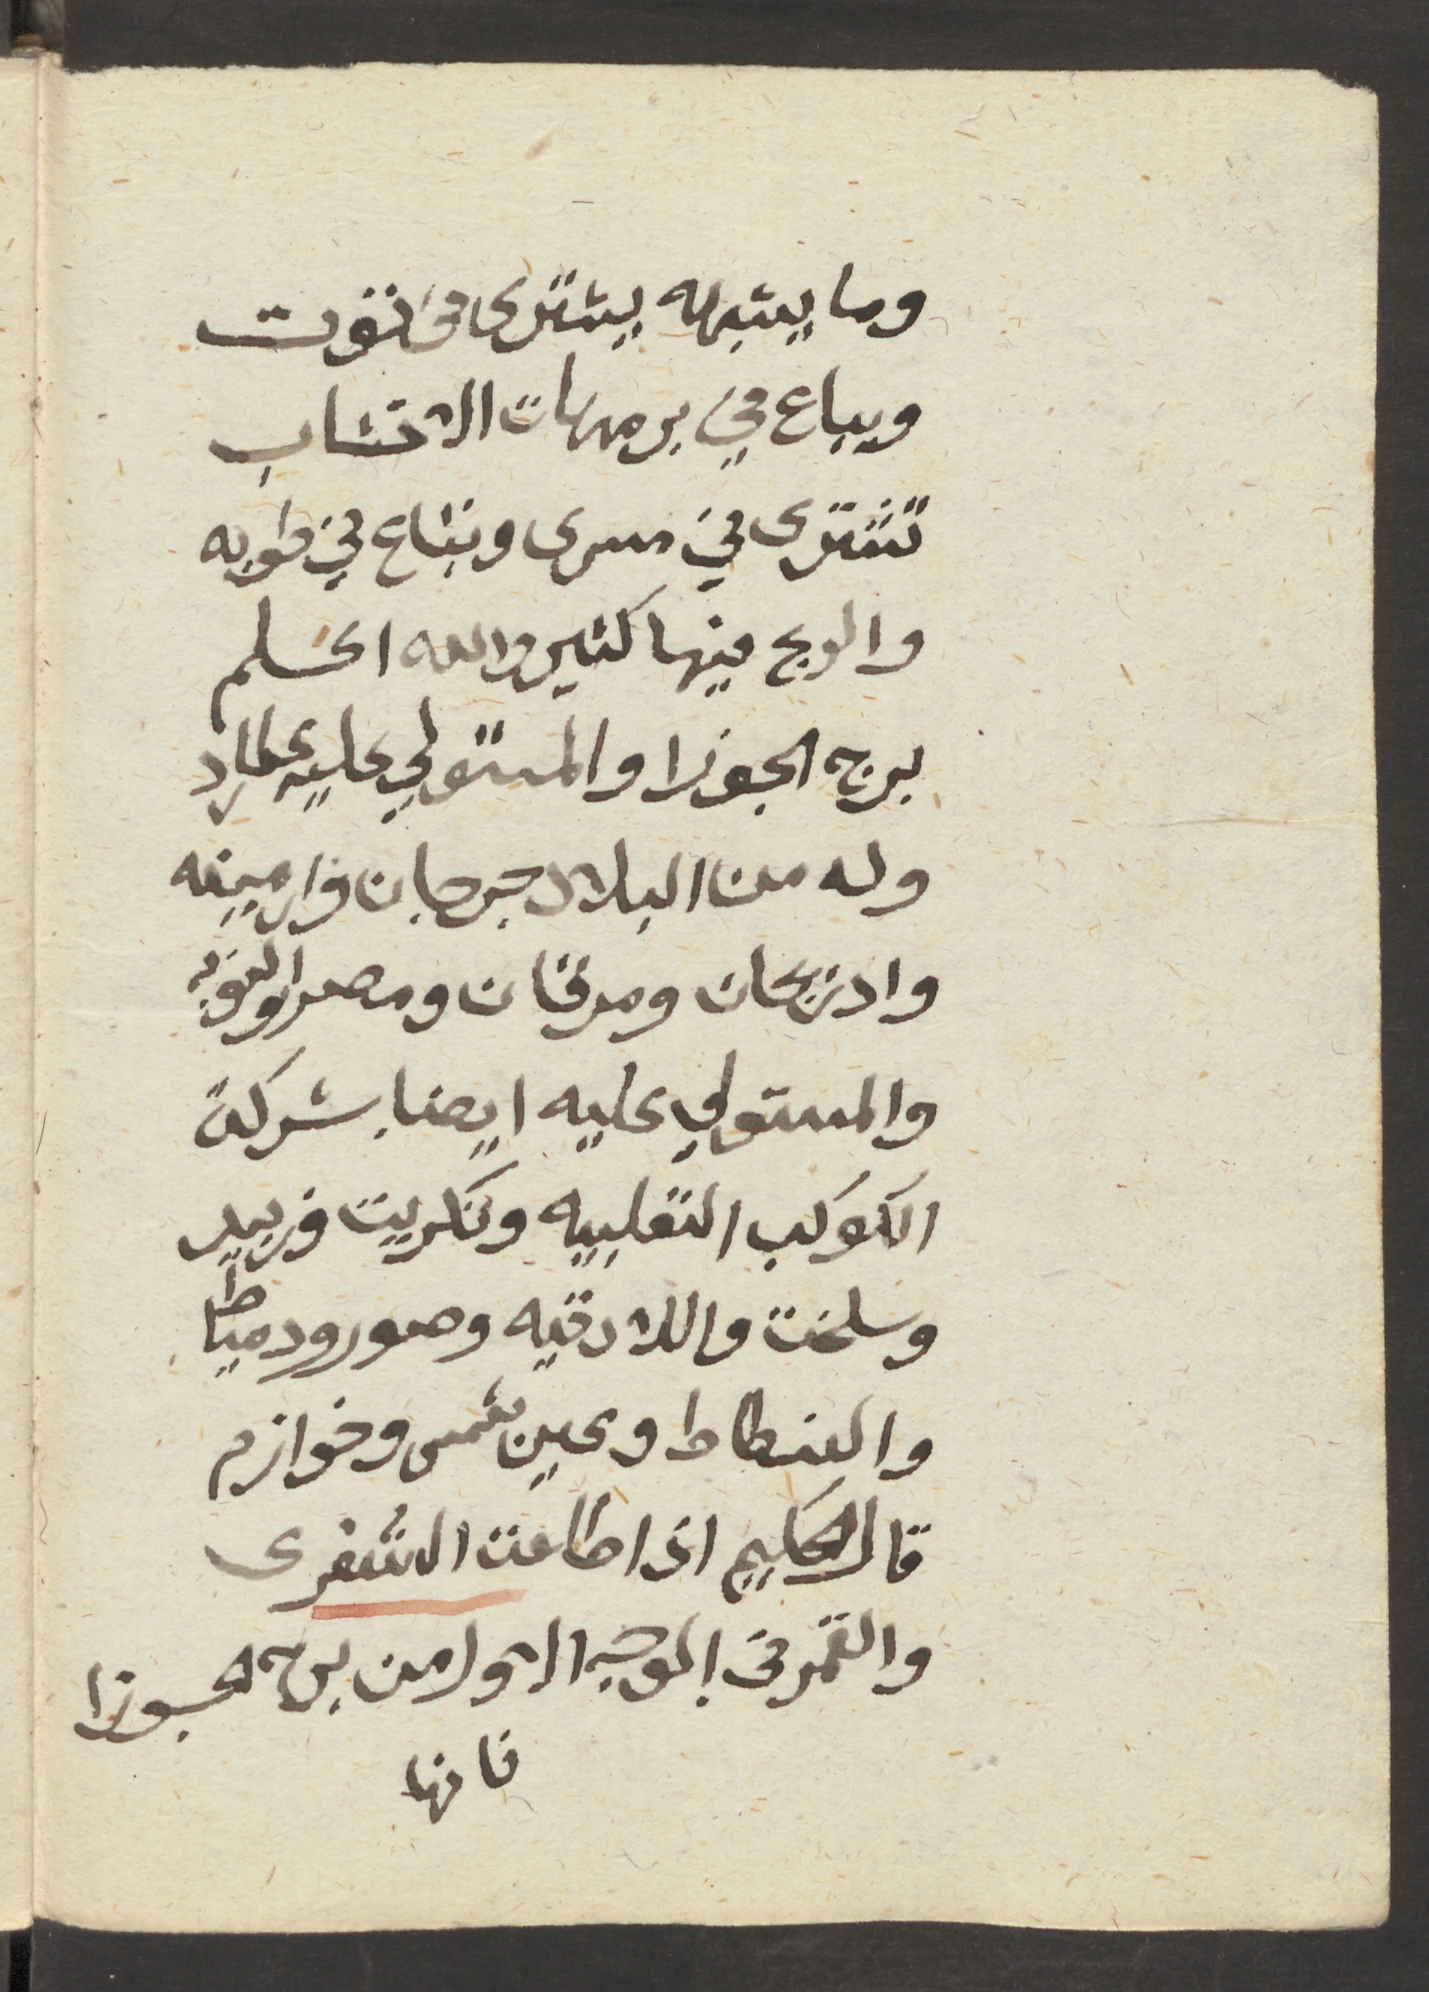 وما يشبهه يشترى في توت
ويباع في برمهات الاخشاب
تشترى في مسرى وتباع في طوبه
والربح فيها كثير والله اعلم
برج الجوزا والمستولي عليه عطارد
وله من البلاد جرجان وارمينه
وادربيجان ومرقان ومصر والنوبه
والمستولي عليه ايضا بشركة
الكوكب الثعلبيه وتكريت وزبيد
وسلخت واللادقيه وصور ودمياط
والفسطاط وعين شمس وخوازم
قال الحكيم اذا طلعت الشعرى
والقمر في الوجه الاول من برج الجوزا
فانها